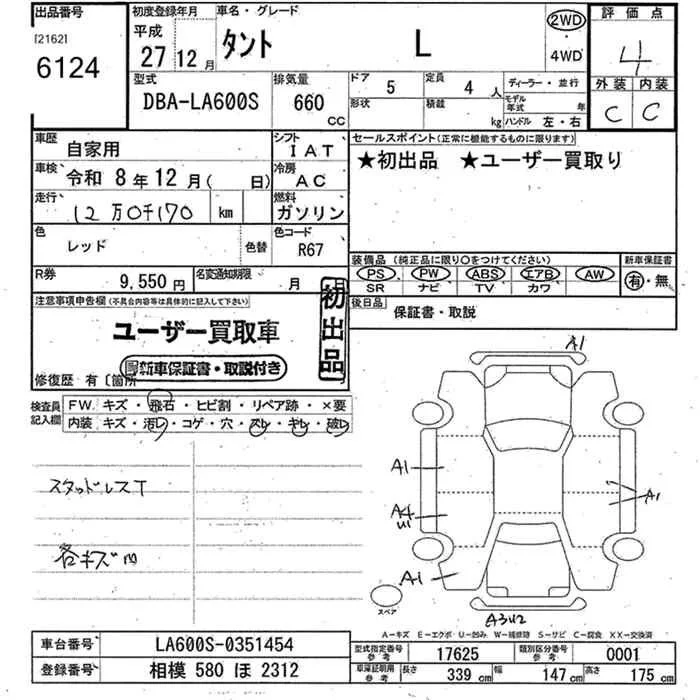 出品番号
[2162]
6124
初度登録年月
平成
27 12 月
車名・グレード
タント L
2WD
・
4WD
評価点
4
外装 内装
C C
型式
DBA-LA600S
排気量
660
CC
ドア 5
定員 4 人
ディーラー・並行
形状
積載 kg
モデル年式 年
ハンドル 左・右
車歴
自家用
シフト
IAT
車検
令和 8 年 12 月( 日)
冷房
AC
走行
12 万0千170 km
燃料
ガソリン
色
レッド
色替
色コード
R67
R券
9,550 円
名変通知期限 月 日
セールスポイント(正常に機能するものに限ります)
★初出品 ★ユーザー買取り
装備品 (純正品に限り○をつけてください)
PS PW ABS エアB AW
SR ナビ TV カワ
新車保証書
有・無
後日品
保証書・取説
注意事項申告欄(不具合内容等は具体的に記入して下さい)
ユーザー買取車
新車保証書・取説付き
初出品
修復歴 有〔箇所
検査員記入欄
FW. キズ・飛石・ヒビ割・リペア跡・×要
内装 キズ・汚レ・コゲ・穴・スレ・キレ・破レ
スタッドレスT
各キズ凹
A1
A1
A4
U1
A1
A1
A3U2
スペア
A-キズ E-エクボ U-凹み W-補修跡 S-サビ C-腐食 XX-交換済
車台番号
LA600S-0351454
登録番号
相模 580 ほ 2312
型式指定番号
参考
17625
類別区分番号
参考
0001
車庫証明用
参考
長さ 339 cm
幅 147 cm
高さ 175 cm